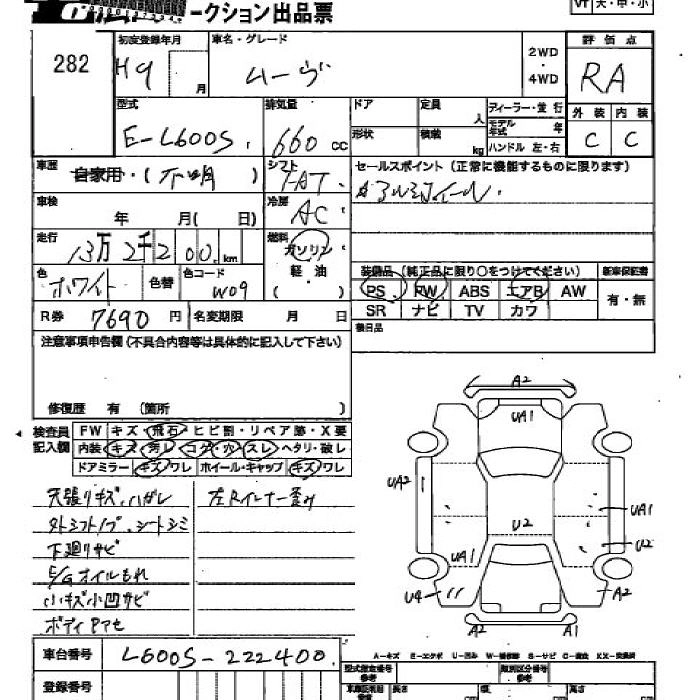 ークション出品票
VT 大・中・小
282
初度登録年月
H9 月
車名・グレード
ムーヴ
2WD
・
4WD
評価点
RA
型式
E-L600S
排気量
660 cc
ドア
定員 人
ディーラー・並行
モデル年式 年
ハンドル 左・右
形状
積載 kg
外装 内装
C C
車歴
自家用・(不明)
シフト
FAT
セールスポイント(正常に機能するものに限ります)
アルミホイール
車検
年 月( 日)
冷房
AC
走行
13万2千200 km
燃料
ガソリン
軽・油
( )
色
ホワイト
色替
色コード
W09
装備品(純正品に限り〇をつけてください)
新車保証書
PS PW ABS エアB AW
有・無
SR ナビ TV カワ
R券 7690 円
名変期限 月 日
後日品
注意事項申告欄(不具合内容等は具体的に記入して下さい)
修復歴 有 (箇所 )
検査員記入欄
FW キズ・飛石・ヒビ割・リペア跡・X要
内装 キズ・汚レ・コゲ・穴・スレ・ヘタリ・破レ
ドアミラー キズ・ワレ ホイール・キャップ キズ・ワレ
天張りキズ、ハガレ
左Rインナー歪み
外シフトノブ、シートシミ
下廻りサビ
E/Gオイルもれ
小キズ小凹サビ
ボディヤケアセ
A2
UA1
UA2
UA1
U2
U2
UA1
U4
A2
A2
A1
A-キズ E-エクボ U-凹み W-補修跡 S-サビ C-腐食 XX-交換済
車台番号
L600S-222400
登録番号
型式指定番号
類別区分番号
長さ cm
幅 cm
高さ cm